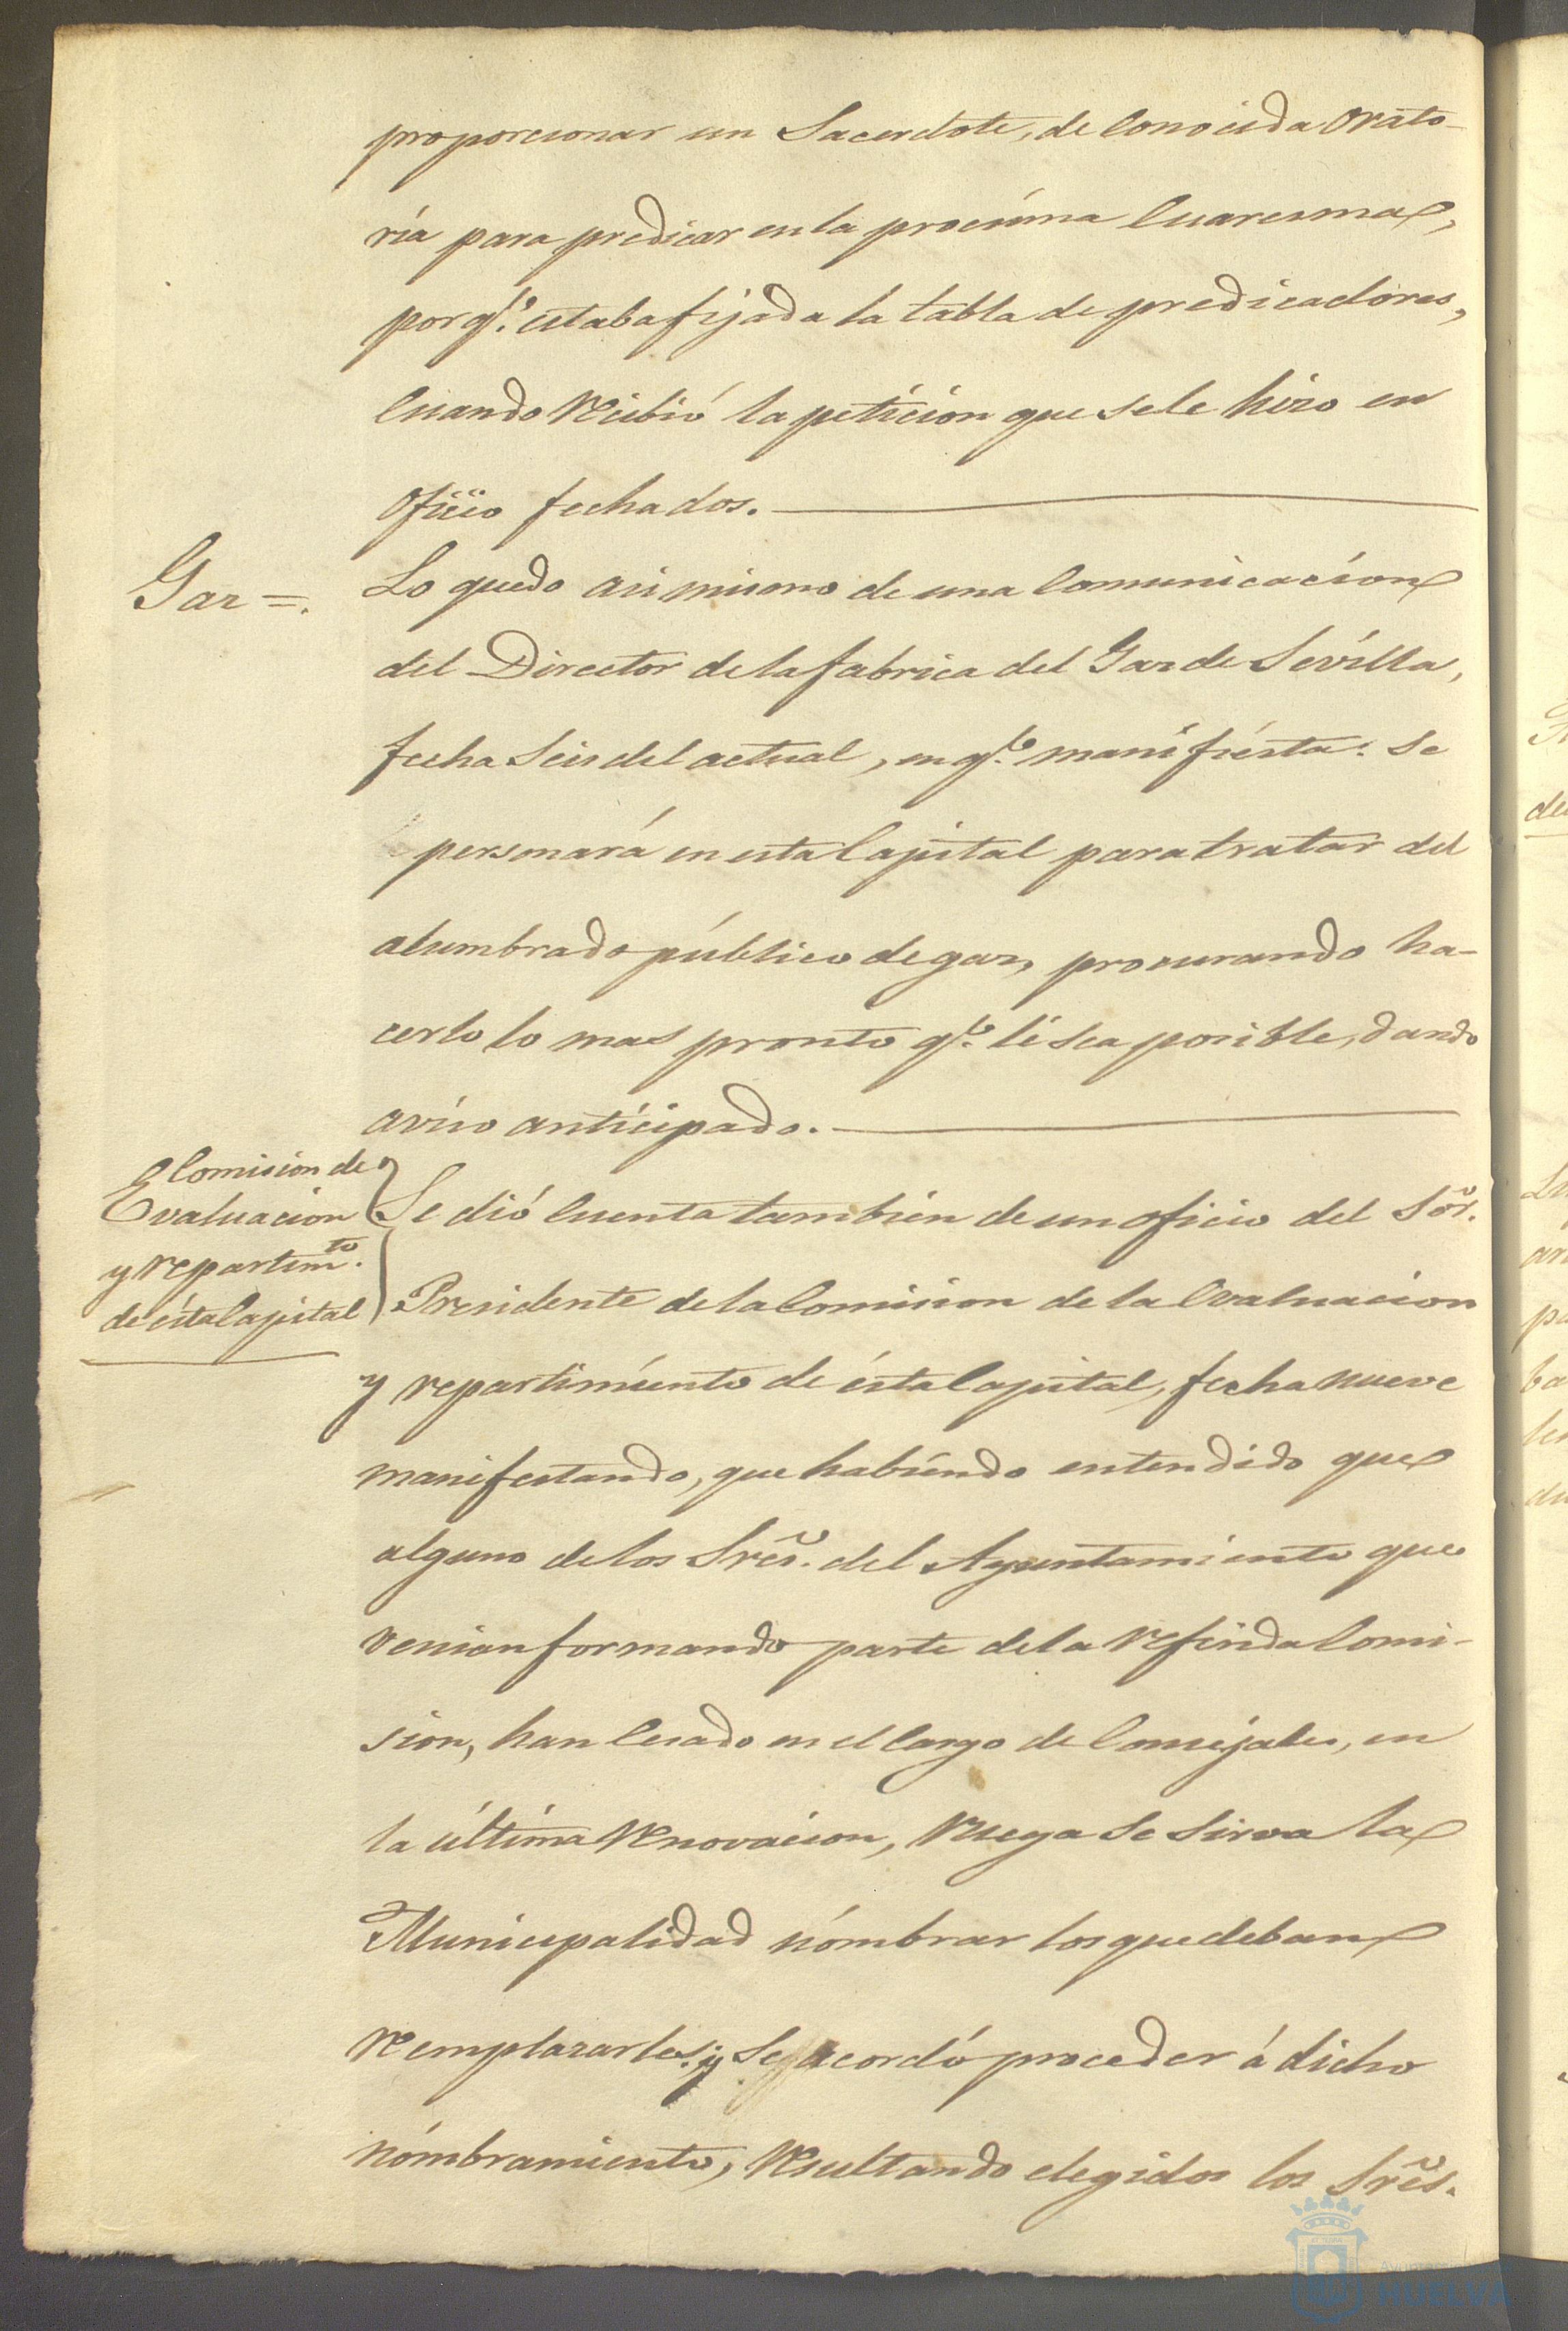 proporcionar un Sacerdote, de conocida Orato-
ría para predicar en la procsíma Cuaresma,
porq.e estaba fijada la tabla de predicadores,
cuando recibió la petición que se le hizo en
Oficio fecha dos.
Gaz=.
Lo quedo asi mismo de una Comunicacíon
del Director de la fabrica del Gaz de Sevílla,
fecha Seis del actual, en q.e manifiésta: se
personará en esta Capital para tratar del
alumbrado público de gaz, procurando ha-
cerlo lo mas pronto q.e lé sea posible, dando
avíso antícipado.
Comision de
Evaluacion
y repartim.to
de ésta Capital
Se dió cuenta tambien de un oficio del Sõr.
Presidente de la Comision de la Evaluacion
y repartimíento de ésta Capital, fecha nueve
manifestando, que habíendo entendido que
alguno de los Srẽs. del Ayuntamiento que
venian formando parte de la referida Comi-
sion, han cesado en el Cargo de Consejales, en
la última renovacion, ruega se sirva la
Municipalidad nómbrar los que deban
remplazarles; y se acordó proceder á dicho
nómbramiento, resultando elegidos los Srẽs.
Ayuntamiento
HUELVA